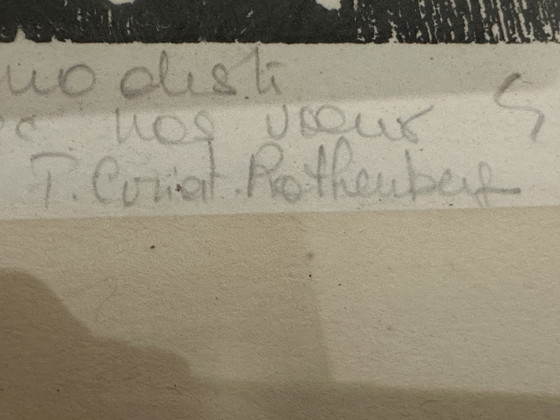 modesti
nos vœux
P. Curiat. Rothenberg